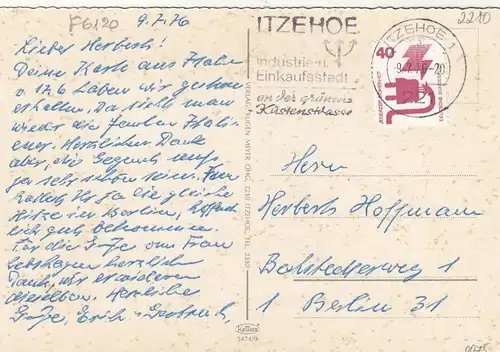 F6120
9.7.76
2210
Lieber Herbert!
Deine Karte aus Italien
v. 17.6 haben wir gestern
erhalten. Da sieht man
wieder die faulen Itali-
ener. Herzlichen Dank
aber, die Gegend muß
ja sehr schön sein. Nun
hattet Ihr ja die gleiche
Hitze in Berlin, hoffent-
lich gut bekommen.
Für die Grüße von Frau
herzlichen
Dank, wir erwidern
dieselben. Herzliche
Grüße, Erich
ITZEHOE
Industrie- u.
Einkaufsstadt
an der grünen
Küstenstrasse
ITZEHOE 1
-9.7.76-20
2210
40
VERLAG EUGEN MEYER OHG, 2210 ITZEHOE, TEL. 3330
Herrn
Herbert Hoffmann
Bolstedterweg 1
1 Berlin 31
KRÜGER